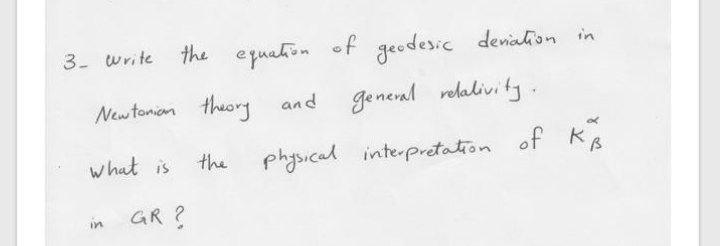 3- write the equation of geodesic deviation in
Newtonian theory and general relativity.
what is the physical interpretation of K^α_β
in GR ?